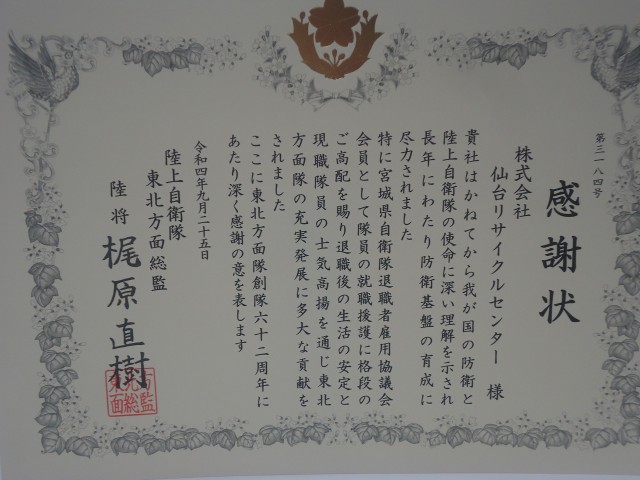 第三一八四号
感謝状
株式会社
仙台リサイクルセンター 様
貴社はかねてから我が国の防衛と
陸上自衛隊の使命に深い理解を示され
長年にわたり防衛基盤の育成に
尽力されました
特に宮城県自衛隊退職者雇用協議会
会員として隊員の就職援護に格段の
ご高配を賜り退職後の生活の安定と
現職隊員の士気高揚を通じ東北
方面隊の充実発展に多大な貢献を
されました
ここに東北方面隊創隊六十二周年に
あたり深く感謝の意を表します
令和四年九月二十五日
陸上自衛隊
東北方面総監
陸将 梶原直樹
東北方面総監